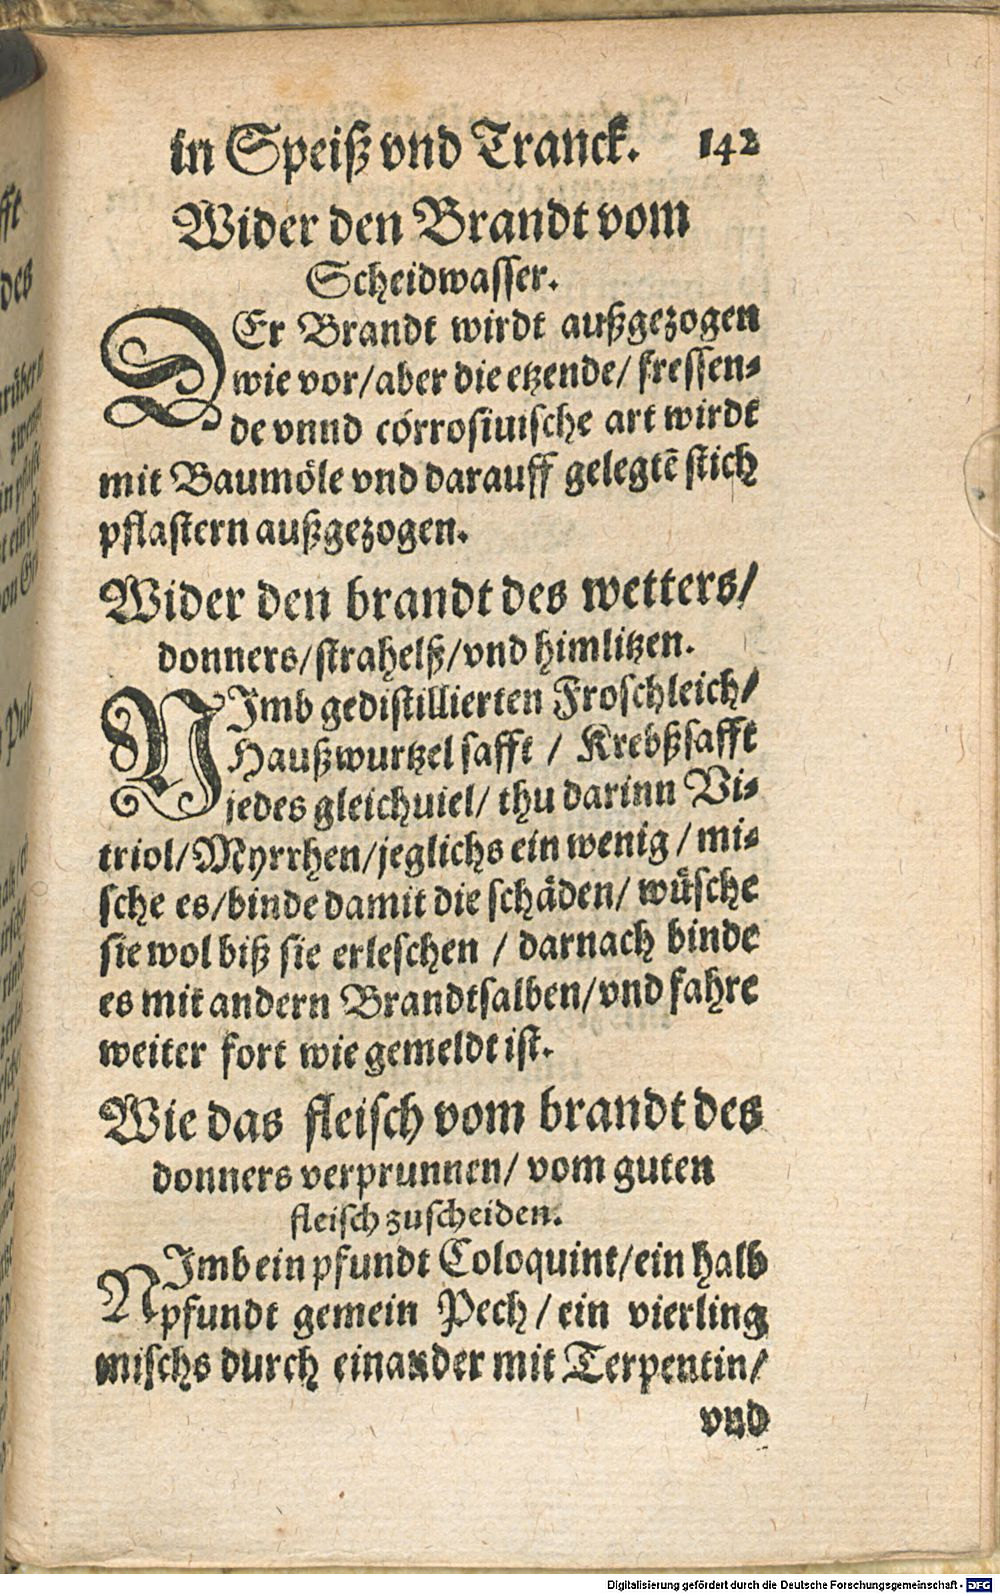 in Speiß vnd Tranck. 142
Wider den Brandt vom
Scheidwasser.
DEr Brandt wirdt außgezogen
wie vor/aber die etzende/ fressen-
de vnnd corrosiuische art wirdt
mit Baumöle vnd darauff gelegtē stich
pflastern außgezogen.
Wider den brandt des wetters/
donners/strahelß/vnd himlitzen.
NImb gedistillierten Froschleich/
Haußwurtzel safft / Krebßsafft
jedes gleichuiel/ thu darinn Vi-
triol/Myrrhen/jeglichs ein wenig / mi-
sche es/binde damit die schäden/ wüsche
sie wol biß sie erleschen / darnach binde
es mit andern Brandtsalben/vnd fahre
weiter fort wie gemeldt ist.
Wie das fleisch vom brandt des
donners verprunnen/ vom guten
fleisch zuscheiden.
NImb ein pfundt Coloquint/ein halb
pfundt gemein Pech / ein vierling
mischs durch einander mit Terpentin/
vnd
Digitalisierung gefördert durch die Deutsche Forschungsgemeinschaft - DFG